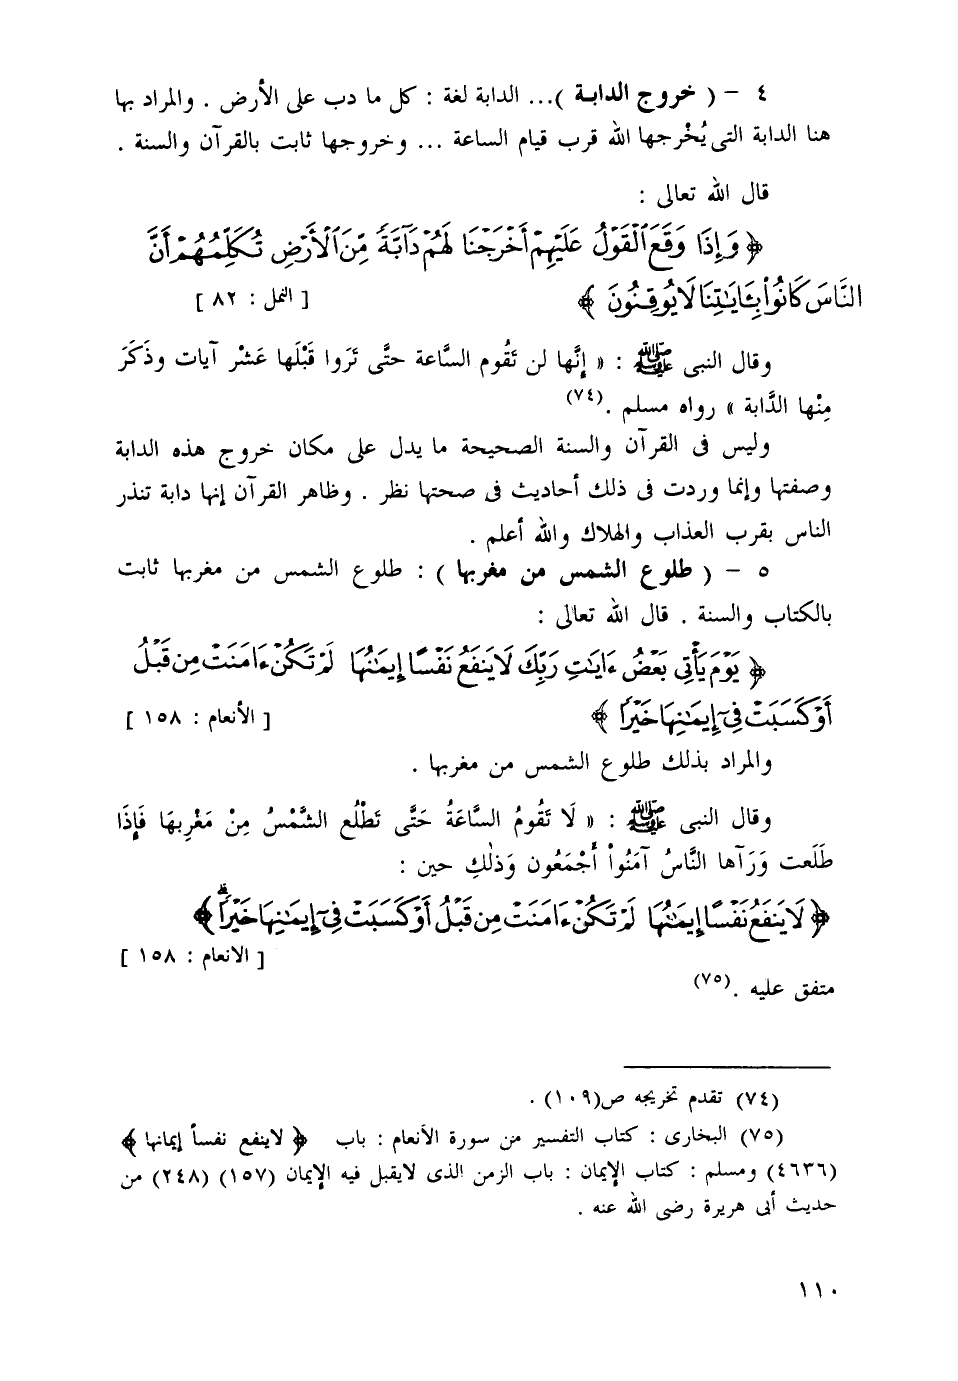 ٤ – ( خروج الدابـة )... الدابة لغة : كل ما دب على الأرض . والمراد بها
هنا الدابة التى يُخْرجها الله قرب قيام الساعة ... وخروجها ثابت بالقرآن والسنة .
قال الله تعالى :
﴿ وَإِذَا وَقَعَ ٱلْقَوْلُ عَلَيْهِمْ أَخْرَجْنَا لَهُمْ دَآبَّةً مِّنَ ٱلْأَرْضِ تُكَلِّمُهُمْ أَنَّ
ٱلنَّاسَ كَانُوا۟ بِـَٔايَـٰتِنَا لَا يُوقِنُونَ ﴾ [ النمل : ٨٢ ]
وقال النبى ﷺ : « إنَّها لن تَقُوم السَّاعة حتَّى تَرَوا قَبْلَها عَشْر آيات وذَكَرَ
مِنْها الدَّابة » رواه مسلم .(٧٤)
وليس فى القرآن والسنة الصحيحة ما يدل على مكان خروج هذه الدابة
وصفتها وإنما وردت فى ذلك أحاديث فى صحتها نظر . وظاهر القرآن إنها دابة تنذر
الناس بقرب العذاب والهلاك والله أعلم .
٥ – ( طلوع الشمس من مغربها ) : طلوع الشمس من مغربها ثابت
بالكتاب والسنة . قال الله تعالى :
﴿ يَوْمَ يَأْتِى بَعْضُ ءَايَـٰتِ رَبِّكَ لَا يَنفَعُ نَفْسًا إِيمَـٰنُهَا لَمْ تَكُنْ ءَامَنَتْ مِن قَبْلُ
أَوْ كَسَبَتْ فِىٓ إِيمَـٰنِهَا خَيْرًا ﴾ [ الأنعام : ١٥٨ ]
والمراد بذلك طلوع الشمس من مغربها .
وقال النبى ﷺ : « لَا تَقُومُ السَّاعَةُ حَتَّى تَطْلُع الشَّمْسُ مِنْ مَغْرِبهَا فَإِذَا
طَلَعت وَرَآها النَّاسُ آمَنُواْ أَجْمَعُون وَذٰلكِ حين :
﴿ لَا يَنفَعُ نَفْسًا إِيمَـٰنُهَا لَمْ تَكُنْ ءَامَنَتْ مِن قَبْلُ أَوْ كَسَبَتْ فِىٓ إِيمَـٰنِهَا خَيْرًا ۗ ﴾
[ الانعام : ١٥٨ ]
متفق عليه .(٧٥)
(٧٤) تقدم تخريجه ص(١٠٩) .
(٧٥) البخارى : كتاب التفسير من سورة الأنعام : باب ﴿ لاينفع نفساً إيمانها ﴾
(٤٦٣٦) ومسلم : كتاب الإيمان : باب الزمن الذى لايقبل فيه الإيمان (١٥٧) (٢٤٨) من
حديث أبى هريرة رضى الله عنه .
١١٠